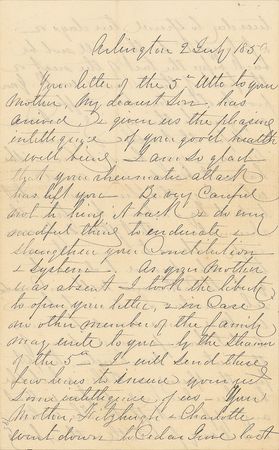 Arlington 2 July 1859
Your letter of the 5th Ulto to your
Mother, My dearest Son, has
arrived & given us the pleasing
intelligence of your good health
& well being. I am so glad
that your rheumatic attack
has left you. Be very careful
not to bring it back & do every
needful thing to eradicate &
strengthen your Constitution
& System. As your Mother
was absent I took the liberty
to open your letter, & in Case
no other member of the family
may write to you by the Steamer
of the 5th I will send these
few lines to insure your
some intelligence of us. Your
Mother, Fitzhugh & Charlotte
went down to Cedar Grove last